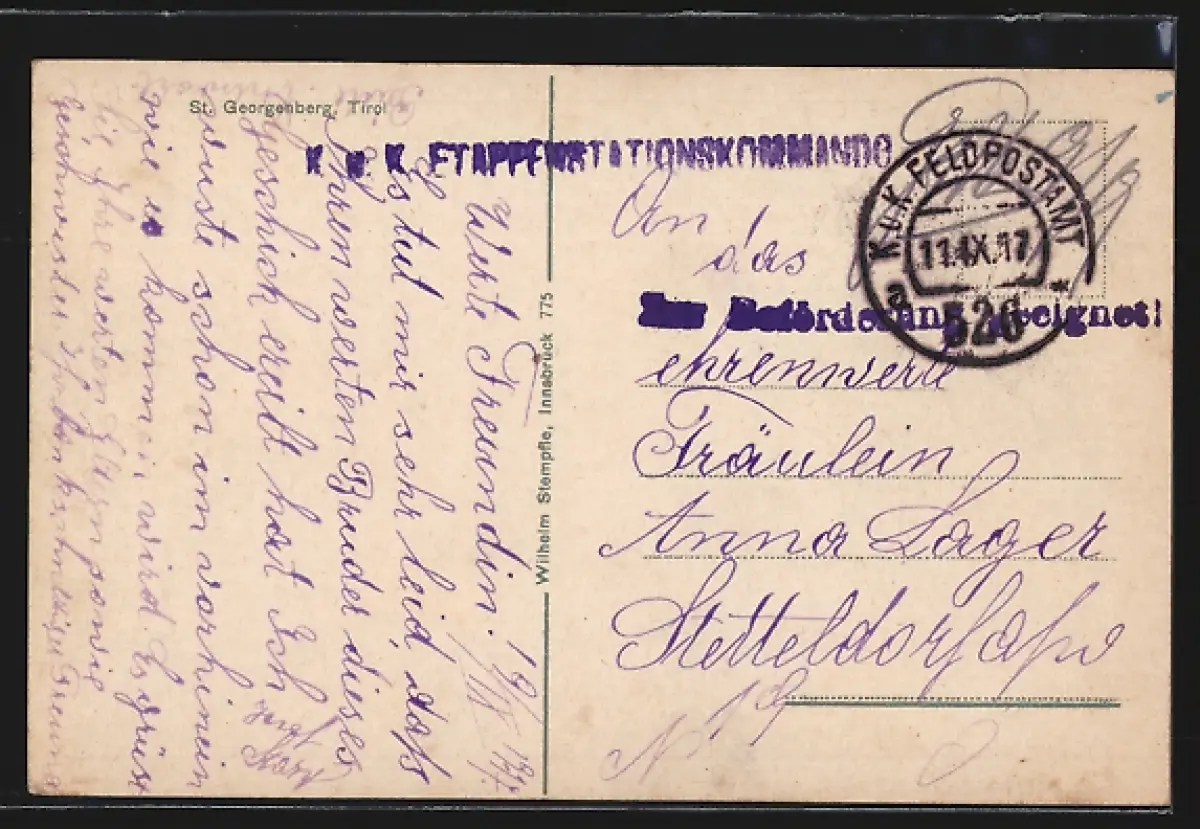 St. Georgenberg, Tirol
K. u. K. ETAPPENSTATIONSKOMMANDO
Werte Freundin!
Es tut mir sehr leid, dass
Ihren werten Bruder dieses
Geschick ereilt hat Ich
wuste schon im vorhinein
wie es kommen wird. Es grüst
Sie, Ihre werten Eltern sowie
Geschwister Ihr dankschuldiger Freund
Wilhelm Stempfle, Innsbruck 775
K.u.K. FELDPOSTAMT
11.IX.17
a 526 *
An
das
Zur Beförderung geeignet!
ehrenwerte
Fräulein
Anna Lager
Stetteldorf a/w
N 19